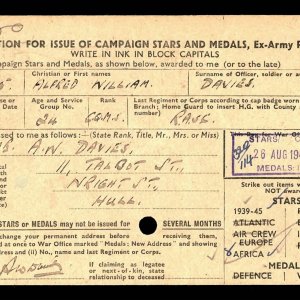 TION FOR ISSUE OF CAMPAIGN STARS AND MEDALS, Ex-Army P
WRITE IN INK IN BLOCK CAPITALS
paign Stars and Medals, as shown below, awarded to me (or to the late)
Christian or First names
Surname of Officer, soldier or a
ALFRED WILLIAM.
DAVIES.
Age and Service
Group No.
Rank
Last Regiment or Corps according to cap badge worn
Branch; Home Guard to insert H.G. with County
34
RASC.
d to me as follows:—(State Rank, Title, Mr., Mrs. or Miss)
A.W. DAVIES.
11, TALBOT ST.,
WRIGHT ST.,
HULL.
STARS:
26 AUG 194
MEDALS:
Strike out items w
NOT AWA
STARS
1939-45
ATLANTIC
AIR CREW
EUROPE
AFRICA
MEDALS
DEFENCE WA
STARS or MEDALS may not be issued for SEVERAL MONTHS
change your permanent address before receiving them, you should
at once to War Office marked "Medals: New Address" and showing
address and (ii) No., name and last Regiment or Corps.
If claiming as legatee
or next-of-kin, state
relationship to deceased